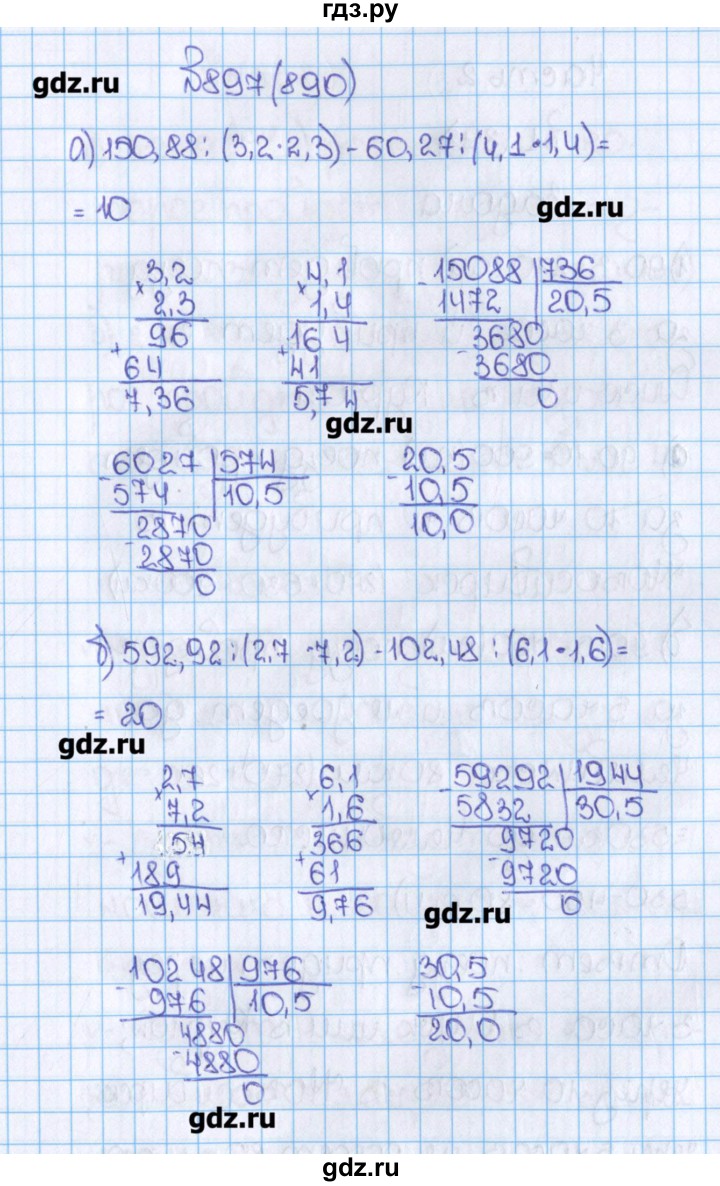 гдз.ру
gdz.ru
№897(890)
а) 150,88 : (3,2 · 2,3) - 60,27 : (4,1 · 1,4) =
= 10
gdz.ru
3,2
× 2,3
96
+ 64
7,36
4,1
× 1,4
164
+ 41
5,74
- 15088 | 736
1472 | 20,5
3680
- 3680
0
gdz.ru
- 6027 | 574
574 | 10,5
2870
- 2870
0
20,5
- 10,5
10,0
б) 592,92 : (2,7 · 7,2) - 102,48 : (6,1 · 1,6) =
= 20
gdz.ru
2,7
× 7,2
54
+ 189
19,44
6,1
× 1,6
366
+ 61
9,76
- 59292 | 1944
5832 | 30,5
9720
- 9720
0
gdz.ru
- 10248 | 976
976 | 10,5
4880
- 4880
0
30,5
- 10,5
20,0
gdz.ru
gdz.ru